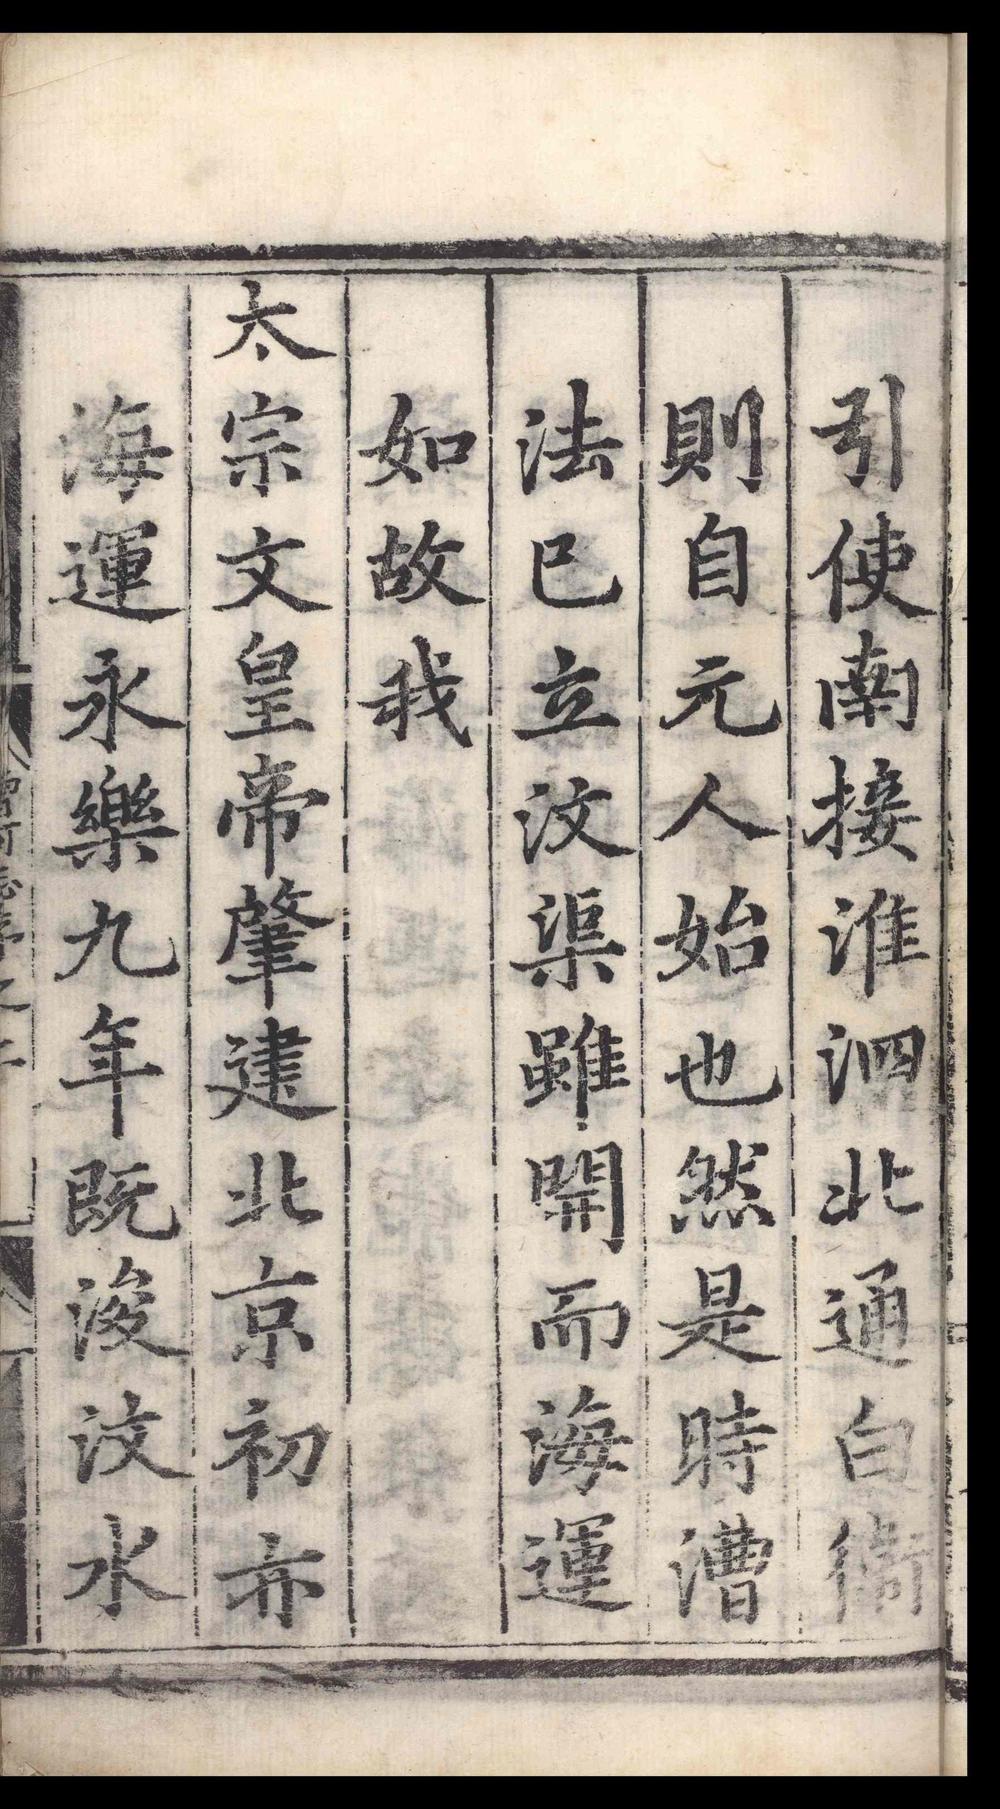 引使南接淮泗北通白衞
則自元人始也然是時漕
法已立汶渠雖開而海運
如故我
太宗文皇帝肇建北京初亦
海運永樂九年既浚汶水